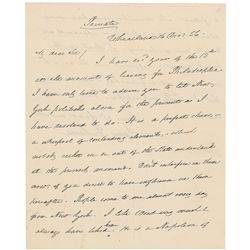 Private
Wheatland 16 Dec: 56
My dear Sir/
I have recd yours of the 15th
on the moment of leaving for Philadelphia.
I have only time to advise you to let New
York politics alone for the present as I
have resolved to do. It is a perfect chaos,
a whirlpool of contending elements, which
nobody in or out of the State understands
at the present moment. Don't interfere in them
now, if you desire to have influence in them
hereafter. People come to me almost every day
from New York. I let them say what I
always have
He is a Napoleon of